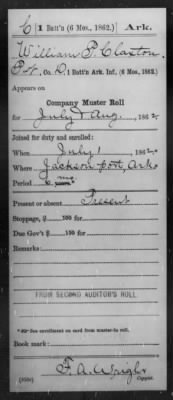 C | 1 Batt'n (6 Mos., 1862.) | Ark.
William P. Claxton
Pt., Co. D, 1 Batt'n Ark. Inf. (6 Mos., 1862.)
Appears on
Company Muster Roll
for July & Aug., 1862.
Joined for duty and enrolled:
When July 1, 1862.
Where Jacksonport, Ark
Period 6 mo years.
Present or absent Present
Stoppage, $ 100 for
Due Gov't $ 100 for
Remarks:
FROM SECOND AUDITOR'S ROLL.
*See enrollment on card from muster-in roll.
Book mark:
F. A. Wright
Copyist.